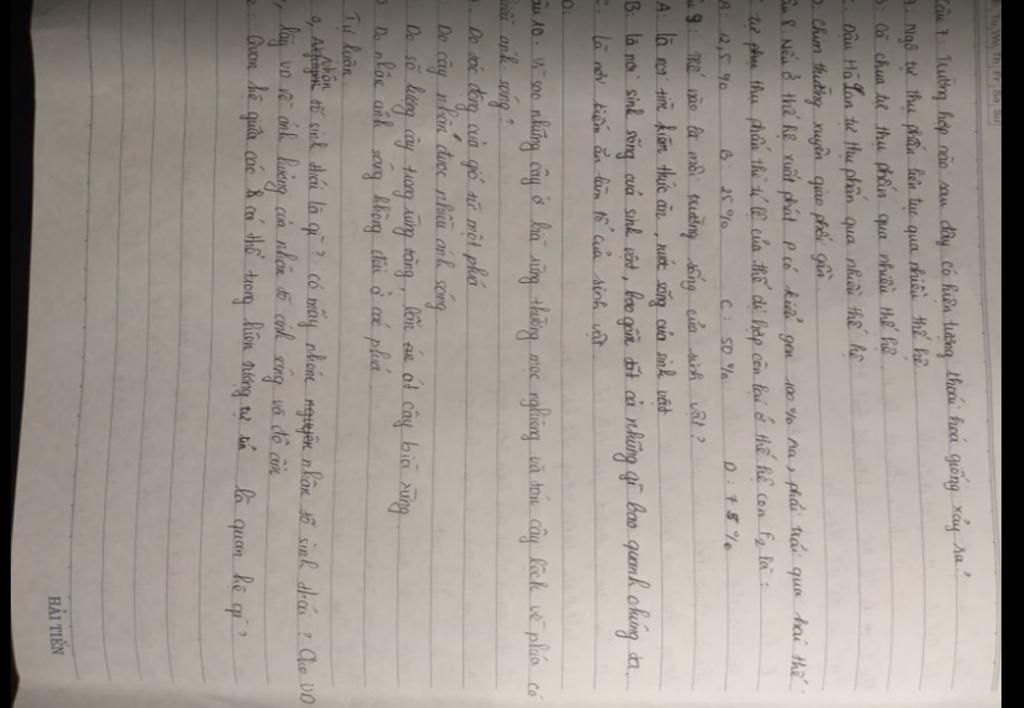 Câu 7: Trường hợp nào sau đây có hiện tượng thoái hoá giống xảy ra?
A. Ngô tự thụ phấn liên tục qua nhiều thế hệ
B: Cà chua tự thụ phấn qua nhiều thế hệ
C. Đậu Hà Lan tự thụ phấn qua nhiều thế hệ
D. Chim thường xuyên giao phối gần
Câu 8 Nếu ở thế hệ xuất phát P có kiểu gen 100% Aa, phải trải qua hai thế
tự phụ thu phấn thì tỉ lệ của thể dị hợp còn lại ở thế hệ con F2 là:
A: 12,5% B: 25% C: 50% D: 75%
u 9: Thế nào là môi trường sống của sinh vật?
A: là nơi tìm kiếm thức ăn, nước sống của sinh vật
B: là nơi sinh sống của sinh vật, bao gồm tất cả những gì bao quanh chúng ta.
C: là nơi kiếm ăn làm tổ của sinh vật.
D:
âu 10. Vì sao những cây ở bìa rừng thường mọc nghiêng và tán cây lệch về phía có
ánh sáng?
Do tác động của gió từ một phía
Do cây nhận được nhiều ánh sáng
Do số lượng cây trong rừng tăng, lấn át cây bìa rừng
Do nhận ánh sáng không đều ở các phía.
Tự luận.
nhân tố sinh thái là gì? có mấy nhóm nhân tố sinh thái? Cho VD
lấy vd về ảnh hưởng của nhân tố ánh sáng và độ ẩm
Quan hệ giữa các cá thể trong hiện tượng tự là quan hệ gì?
HẢI TIẾN